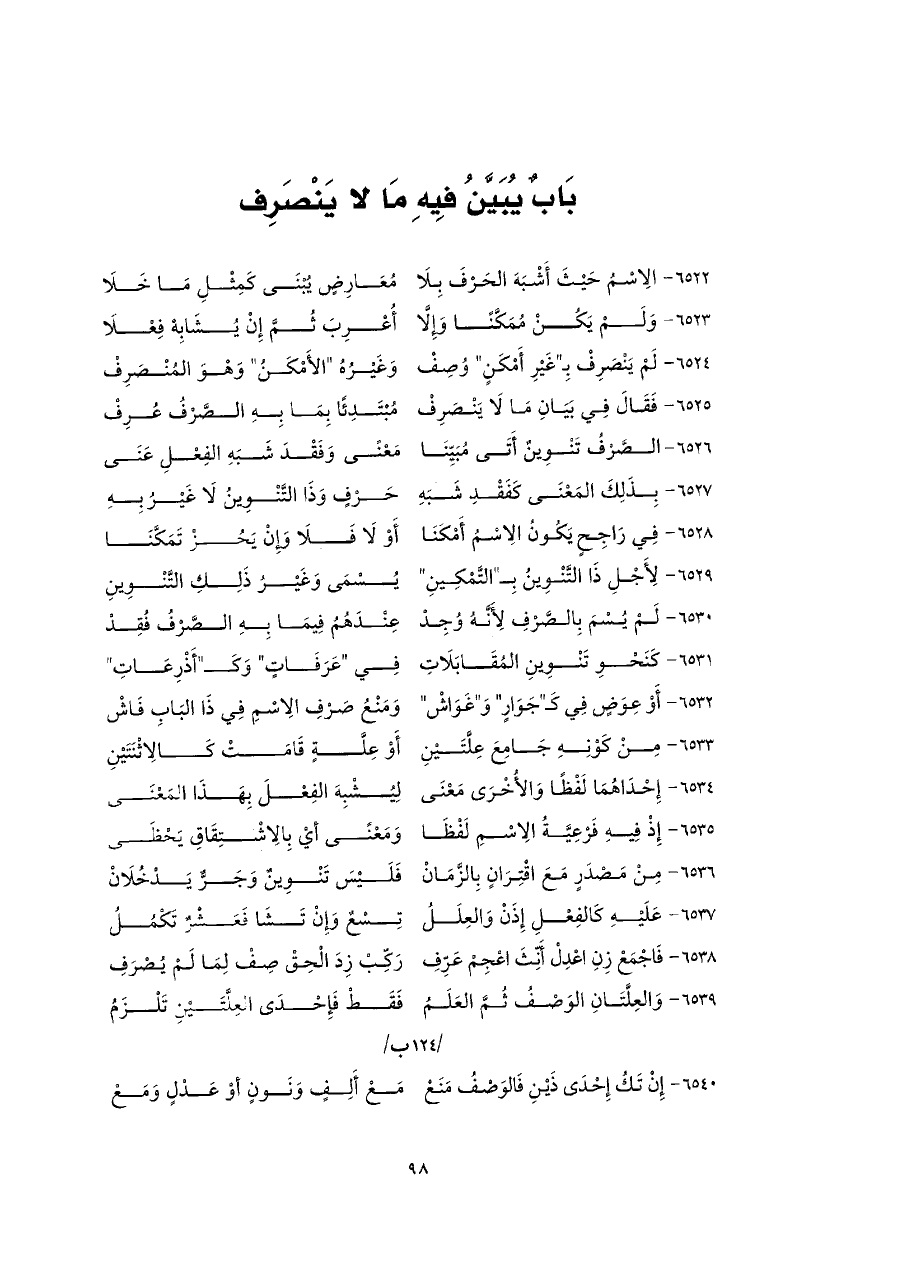 بَابٌ يُبَيَّنُ فِيهِ مَا لا يَنْصَرِف
٦٥٢٢- الِاسْمُ حَيْثُ أَشْبَهَ الحَرْفَ بِلَا مُعَارِضٍ يُبْنَى كَمِثْلِ مَا خَلَا
٦٥٢٣- وَلَمْ يَكُنْ مُمَكَّنًا وَإِلَّا أُعْرِبَ ثُمَّ إِنْ يُشَابِهْ فِعْلَا
٦٥٢٤- لَمْ يَنْصَرِفْ بِـ"غَيْرِ أَمْكَنٍ" وُصِفْ وَغَيْرُهُ "الأَمْكَنُ" وَهْوَ المُنْصَرِفْ
٦٥٢٥- فَقَالَ فِي بَيَانِ مَا لَا يَنْصَرِفْ مُبْتَدِئًا بِمَا بِهِ الصَّرْفُ عُرِفْ
٦٥٢٦- الصَّرْفُ تَنْوِينٌ أَتَى مُبَيِّنَا مَعْنًى وَفَقْدَ شَبَهِ الفِعْلِ عَنَى
٦٥٢٧- بِذَلِكَ المَعْنَى كَفَقْدِ شَبَهِ حَرْفٍ وَذَا التَّنْوِينُ لَا غَيْرُ بِهِ
٦٥٢٨- فِي رَاجِحٍ يَكُونُ الِاسْمُ أَمْكَنَا أَوْ لَا فَلَا وَإِنْ يَحُزْ تَمَكُّنَا
٦٥٢٩- لِأَجْلِ ذَا التَّنْوِينُ بِـ"التَّمْكِينِ" يُسْمَى وَغَيْرُ ذَلِكَ التَّنْوِينِ
٦٥٣٠- لَمْ يُسْمَ بِالصَّرْفِ لِأَنَّهُ وُجِدْ عِنْدَهُمُ فِيمَا بِهِ الصَّرْفُ فُقِدْ
٦٥٣١- كَنَحْوِ تَنْوِينِ المُقَابَلَاتِ فِي "عَرَفَاتٍ" وَكَـ"أَذْرِعَاتِ"
٦٥٣٢- أَوْ عِوَضٍ فِي كَـ"جَوَارٍ" وَ"غَوَاشْ" وَمَنْعُ صَرْفِ الِاسْمِ فِي ذَا البَابِ فَاشْ
٦٥٣٣- مِنْ كَوْنِهِ جَامِعَ عِلَّتَيْنِ أَوْ عِلَّةٍ قَامَتْ كَالِاثْنَتَيْنِ
٦٥٣٤- إِحْدَاهُمَا لَفْظًا وَالُأخْرَى مَعْنَى لِيُشْبِهَ الفِعْلَ بِهَذَا المَعْنَى
٦٥٣٥- إِذْ فِيهِ فَرْعِيَّةُ الِاسْمِ لَفْظَا وَمَعْنًى أيْ بِالِاشْتِقَاقِ يَحْظَى
٦٥٣٦- مِنْ مَصْدَرٍ مَعَ اقْتِرَانٍ بِالزَّمَانْ فَلَيْسَ تَنْوِينٌ وَجَرٌّ يَدْخُلَانْ
٦٥٣٧- عَلَيْهِ كَالفِعْلِ إِذَنْ وَالعِلَلُ تِسْعٌ وَإِنْ تَشَا فَعَشْرٌ تَكْمُلُ
٦٥٣٨- فَاجْمَعْ زِنِ اعْدِلْ أَنِّثَ اعْجِمْ عَرِّفِ رَكِّبْ زِدَ الْحِقْ صِفْ لِمَا لَمْ يُصْرَفِ
٦٥٣٩- وَالعِلَّتَانِ الوَصْفُ ثُمَّ العَلَمُ فَقَطْ فَإِحْدَى العِلَّتَيْنِ تَلْزَمُ
/١٢٤ب/
٦٥٤٠- إِنْ تَكُ إِحْدَى ذَيْنِ فَالوَصْفُ مَنَعْ مَعْ أَلِفٍ وَنَونٍ أوْ عَدْلٍ وَمَعْ
٩٨